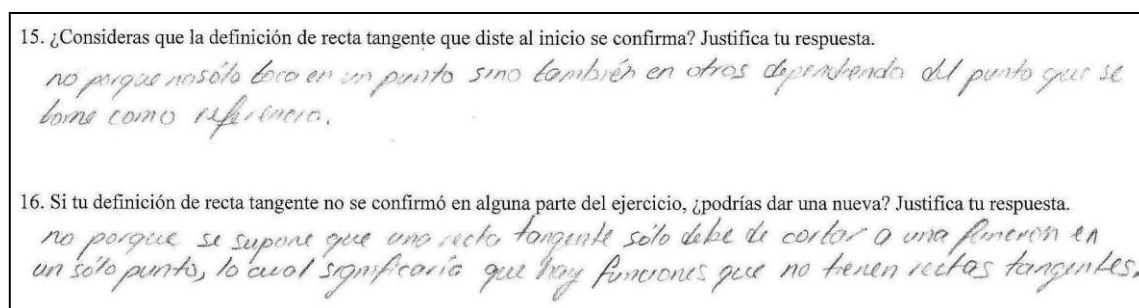 15. ¿Consideras que la definición de recta tangente que diste al inicio se confirma? Justifica tu respuesta.
no porque no sólo toca en un punto sino también en otros dependiendo del punto que se
tome como referencia.
16. Si tu definición de recta tangente no se confirmó en alguna parte del ejercicio, ¿podrías dar una nueva? Justifica tu respuesta.
no porque se supone que una recta tangente sólo debe de cortar a una función en
un sólo punto, lo cual significaría que hay funciones que no tienen rectas tangentes.